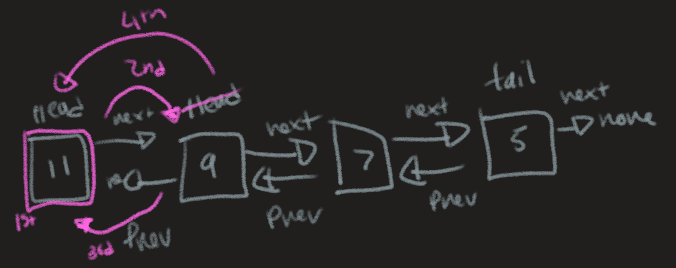 4th
2nd
tail
Head
next
Head
next
next
next
none
11
9
7
5
1st
3rd
Prev
Prev
Prev